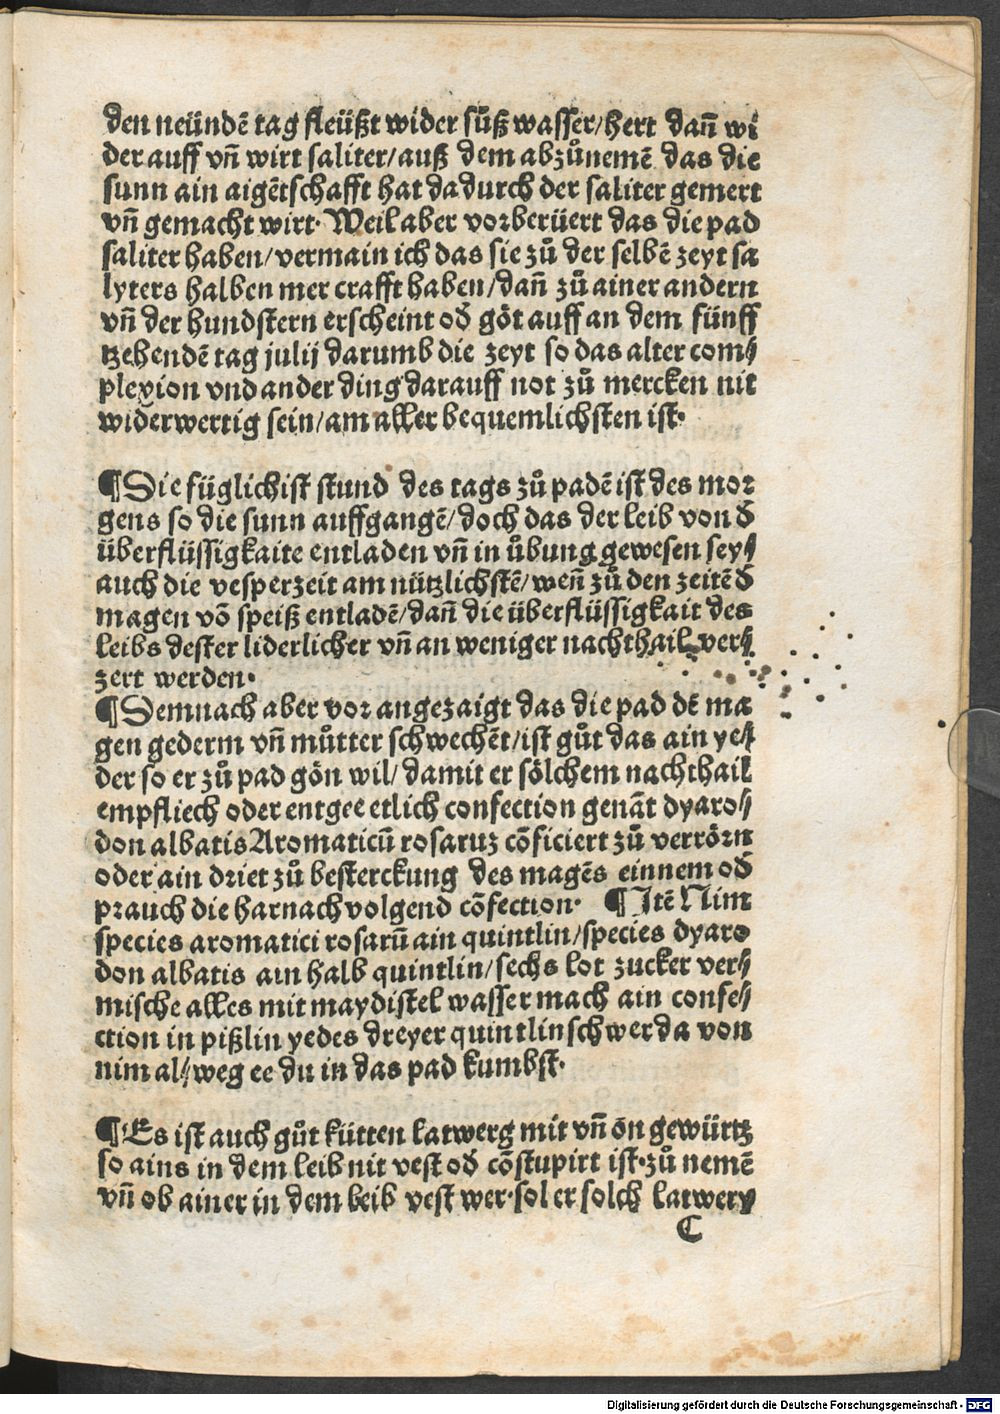 den neündē tag fleüßt wider sůß wasser/hert dañ wi
der auff vñ wirt saliter/auß dem abzůnemē das die
sunn ain aigētschafft hat dadurch der saliter gemert
vñ gemacht wirt· Weil aber vorberüert das die pad
saliter haben/vermain ich das sie zů der selbē zeyt sa
lyters halben mer crafft haben/dañ zů ainer andern
vñ der hundstern erscheint od̛ göt auff an dem fünff
tzehendē tag julij darumb die zeyt so das alter com⸗
plexion vnd ander ding darauff not zů mercken nit
widerwertig sein/am aller bequemlichsten ist·
¶Die füglichist stund des tags zů padē ist des mor
gens so die sunn auffgangē/doch das der leib von d̛
überflüssigkaite entladen vñ in ůbung gewesen sey⸗
auch die vesperzeit am nützlichstē/weñ zů den zeitē d̛
magen vō speiß entladē/dañ die überflüssigkait des
leibs dester liderlicher vñ an weniger nachthail ver⸗
zert werden·
¶Demnach aber vor angezaigt das die pad dē ma
gen gederm vñ můtter schwechēt/ist gůt das ain ye⸗
der so er zů pad gön wil/damit er sölchem nachthail
empfliech oder entgee etlich confection genāt dyaro⸗
don albatis Aromaticū rosaruz cōficiert zů verrörn
oder ain driet zů besterckung des magēs einnem od̛
prauch die harnach volgend cōfection· ¶Itē Nim
species aromatici rosarū ain quintlin/species dyaro
don albatis ain halb quintlin/sechs lot zucker ver⸗
mische alles mit maydistel wasser mach ain confe⸗
ction in pißlin yedes dreyer quintlin schwer da von
nim al⸗weg ee du in das pad kumbst·
¶Es ist auch gůt kütten latwerg mit vñ ōn gewürtz
so ains in dem leib nit vest od̛ cōstupirt ist·zů nemē
vñ ob ainer in dem beib vest wer·sol er solch latwery
C
Digitalisierung gefördert durch die Deutsche Forschungsgemeinschaft - DFG